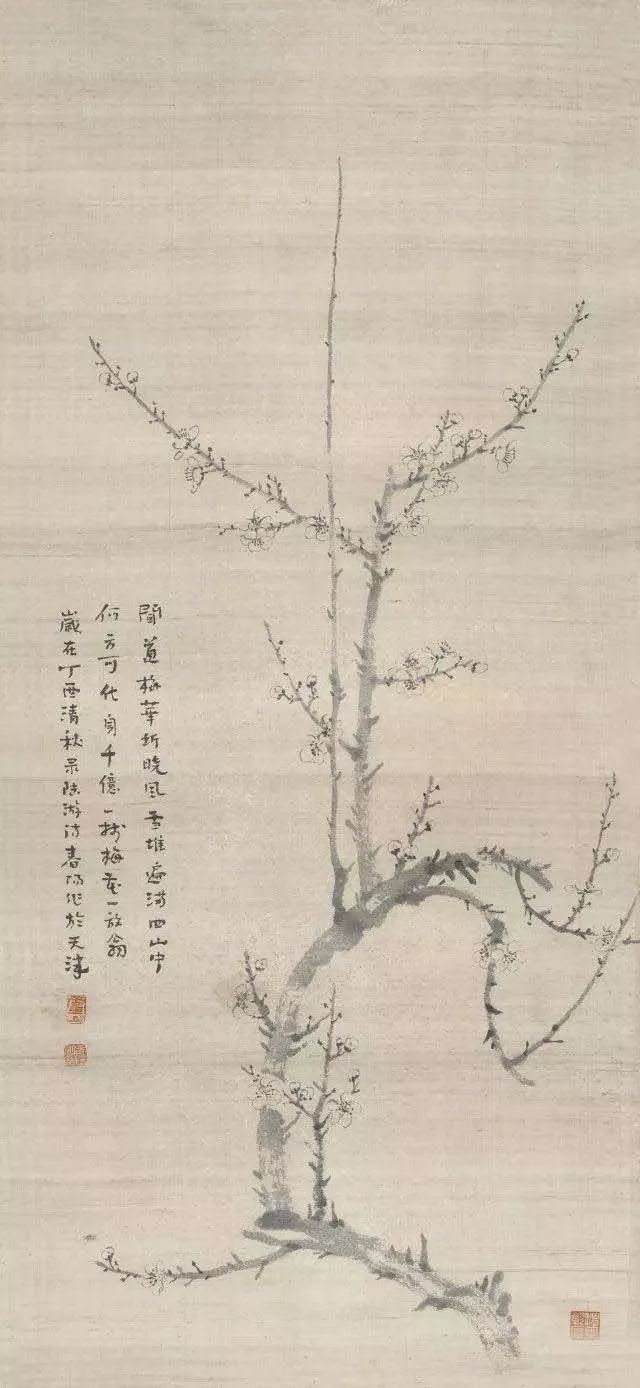 聞道梅華坼曉風雪堆遍滿四山中
何方可化身千億一樹梅花一放翁
歲在丁酉清秋录陆游诗春陽作於天津